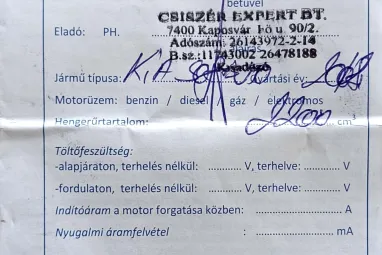 betűvel
CSISZÉR EXPERT BT.
Eladó: PH. 7400 Kaposvár Fő u. 90/2.
Adószám: 26143972-2-14
B.sz.:11743002 26478188
Jármű típusa: KIA gyártási év:
Motorüzem: benzin / diesel / gáz / elektromos
Hengerűrtartalom: 2200 cm³
Töltőfeszültség:
-alapjáraton, terhelés nélkül: V, terhelve: V
-fordulaton, terhelés nélkül: V, terhelve: V
Indítóáram a motor forgatása közben: A
Nyugalmi áramfelvétel : mA